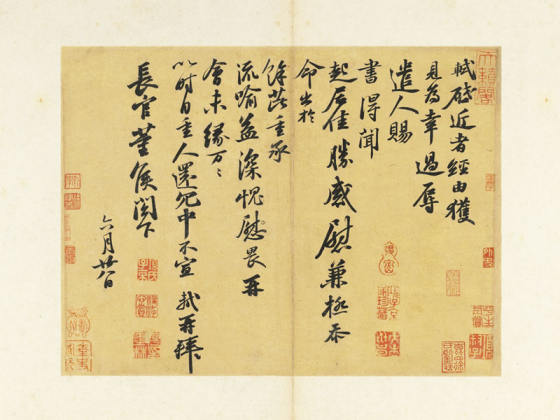 軾啟近者經由獲
見為幸過辱
遣人賜
書得聞
起居佳勝感慰兼極忝
命出於
餘芘重承
流喻益深愧慰畏再
會未緣萬〻
以時自重人還冗中不宣 軾再拜
長官董侯閤下
六月廿八日